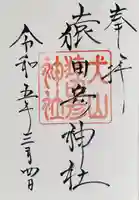 奉拝
猿田彦神社
犬山
神社
令和五年三月四日